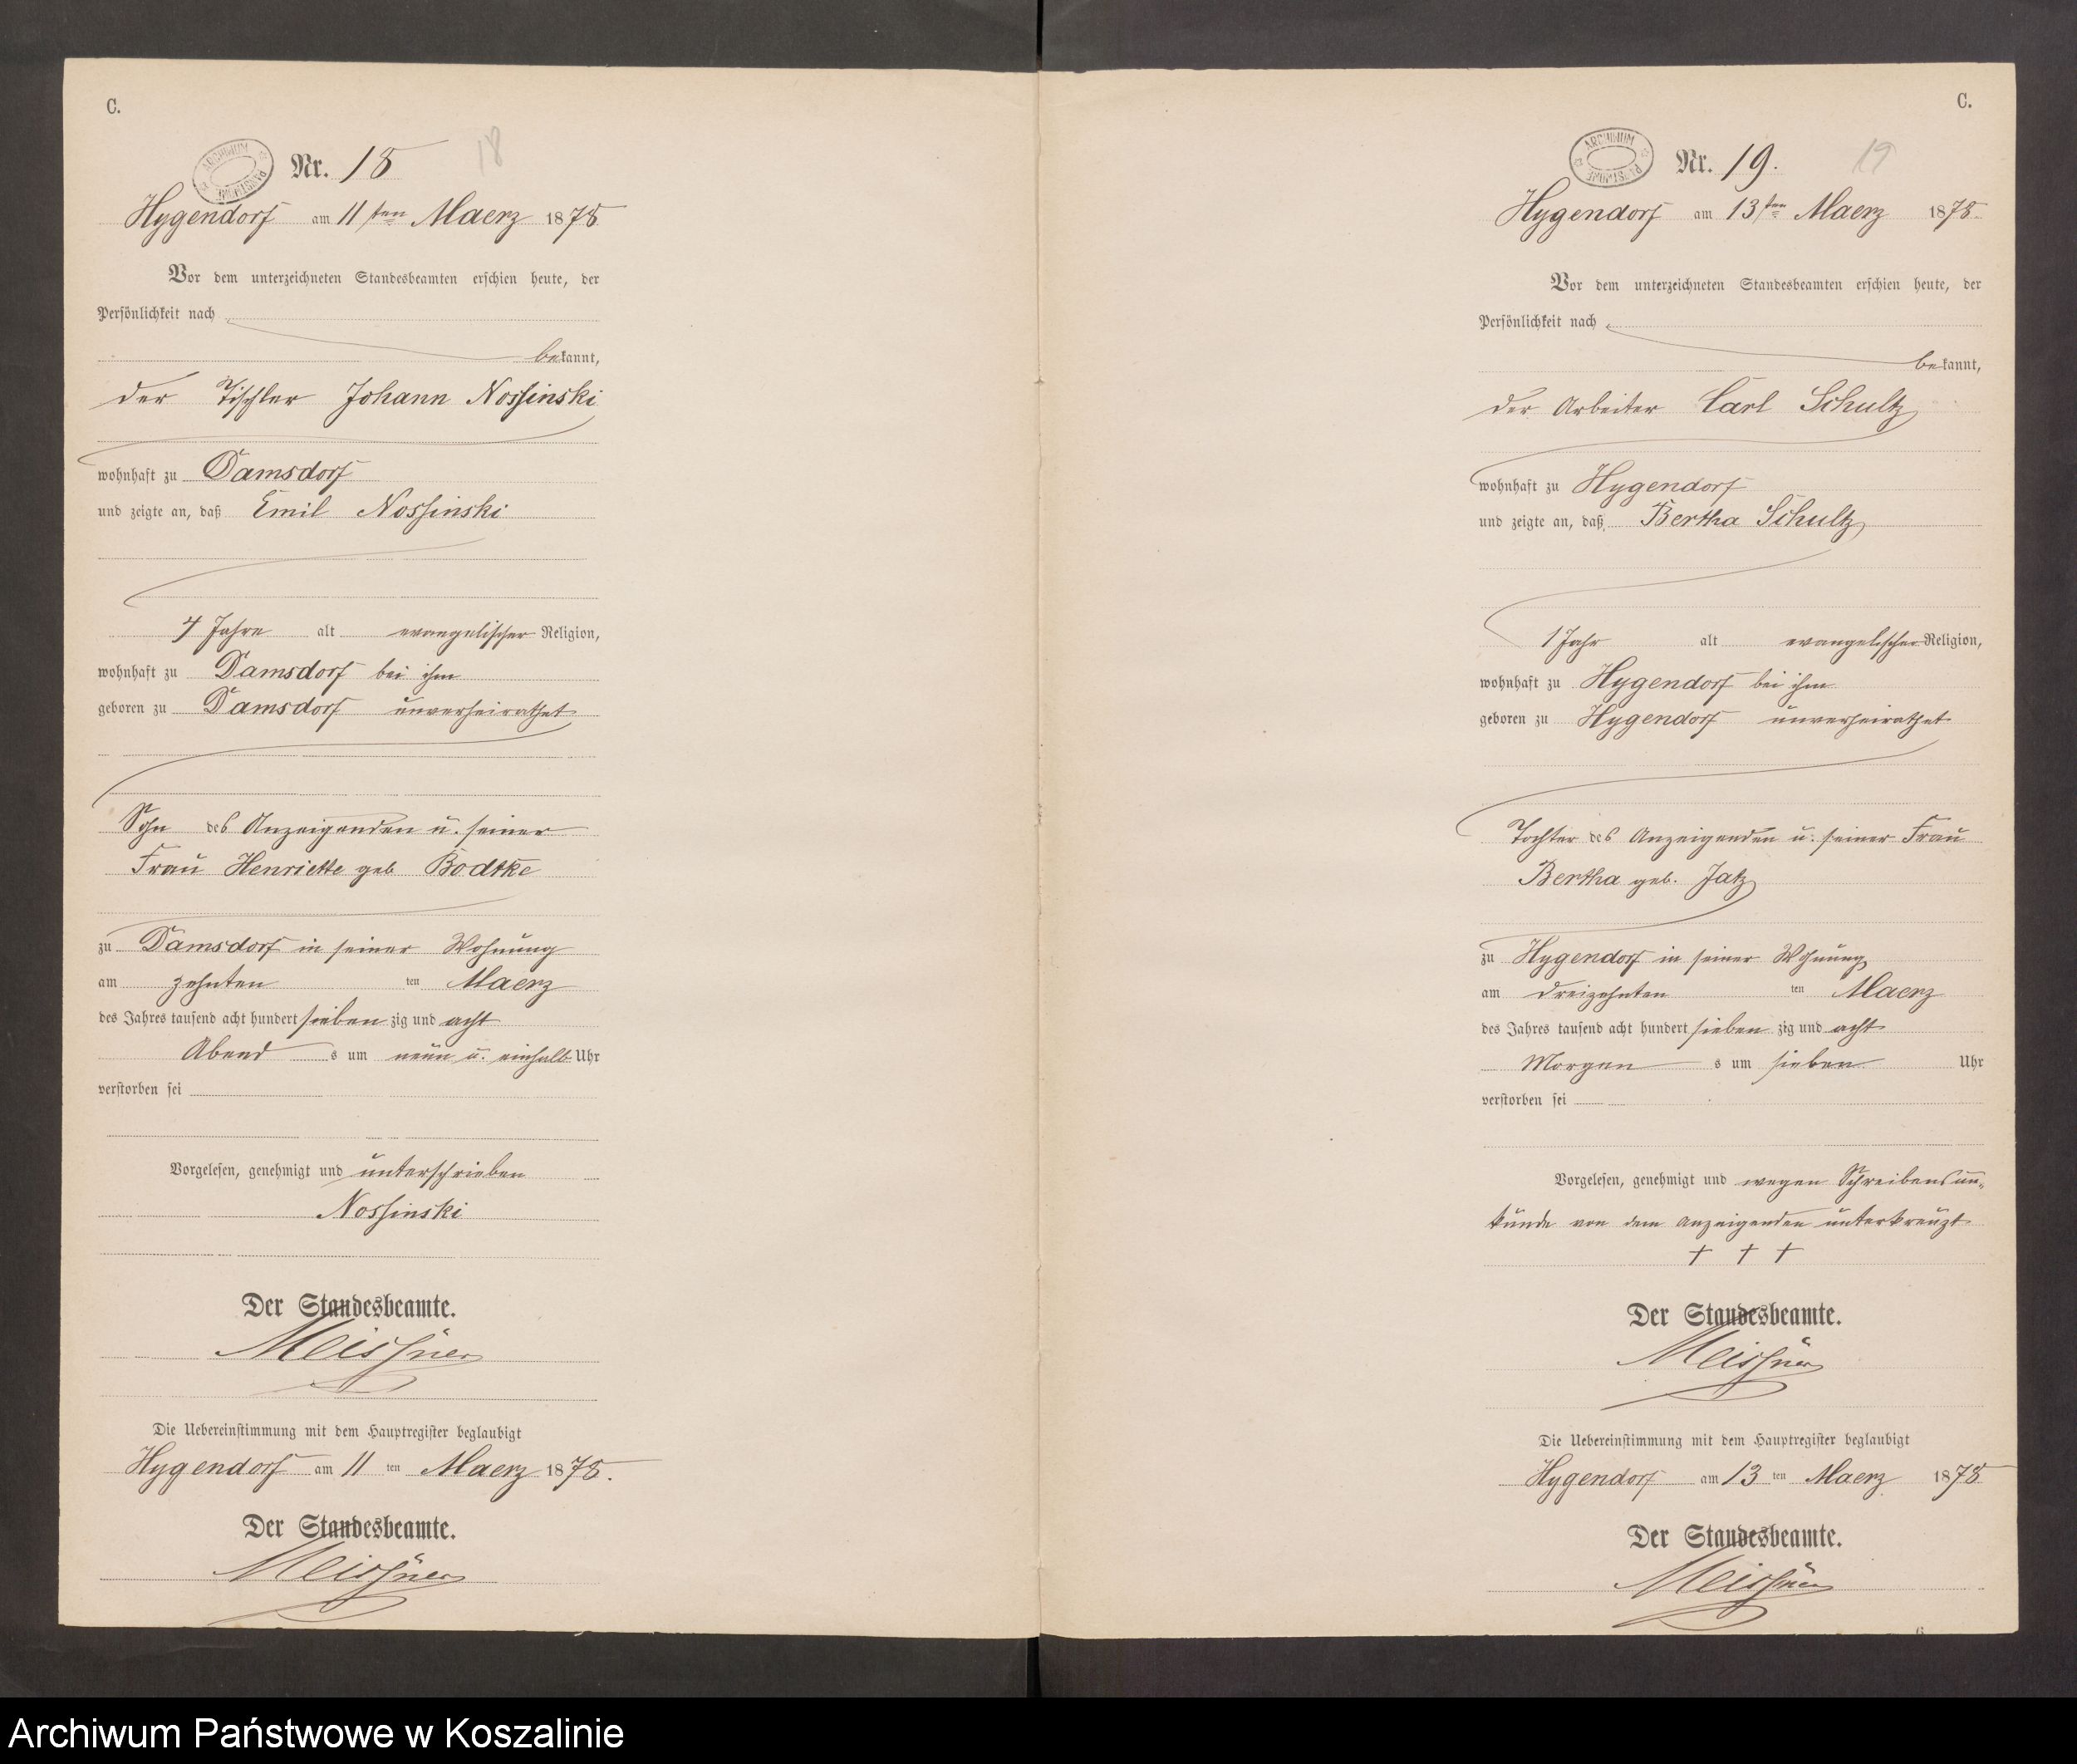 C.
ARCHIWUM PAŃSTWOWE
Nr. 18
18
Hygendorf am 11ten Maerz 1878
Vor dem unterzeichneten Standesbeamten erschien heute, der
Persönlichkeit nach
bekannt,
der Tischler Johann Nossinski
wohnhaft zu Damsdorf
und zeigte an, daß Emil Nossinski
4 Jahre alt evangelischer Religion,
wohnhaft zu Damsdorf bei ihm
geboren zu Damsdorf unverheirathet
Sohn des Anzeigenden u. seiner
Frau Henriette geb Bodtke
zu Damsdorf in seiner Wohnung
am zehnten ten Maerz
des Jahres tausend acht hundert siebenzig und acht
Abends um neun u. einhalb Uhr
verstorben sei
Vorgelesen, genehmigt und unterschrieben
Nossinski
Der Standesbeamte.
Meissner
Die Uebereinstimmung mit dem Hauptregister beglaubigt
Hygendorf am 11ten Maerz 1878.
Der Standesbeamte.
Meissner
C.
ARCHIWUM PAŃSTWOWE
Nr. 19.
19
Hygendorf am 13ten Maerz 1878
Vor dem unterzeichneten Standesbeamten erschien heute, der
Persönlichkeit nach
bekannt,
der Arbeiter Carl Schultz
wohnhaft zu Hygendorf
und zeigte an, daß Bertha Schultz
1 Jahr alt evangelischer Religion,
wohnhaft zu Hygendorf bei ihm
geboren zu Hygendorf unverheirathet
Tochter des Anzeigenden u. seiner Frau
Bertha geb. Jatz
zu Hygendorf in seiner Wohnung
am dreizehnten ten Maerz
des Jahres tausend acht hundert siebenzig und acht
Morgens um sieben Uhr
verstorben sei
Vorgelesen, genehmigt und wegen Schreibensun-
kunde von dem Anzeigenden unterkreuzt
+ + +
Der Standesbeamte.
Meissner
Die Uebereinstimmung mit dem Hauptregister beglaubigt
Hygendorf am 13ten Maerz 1878
Der Standesbeamte.
Meissner
6
Archiwum Państwowe w Koszalinie